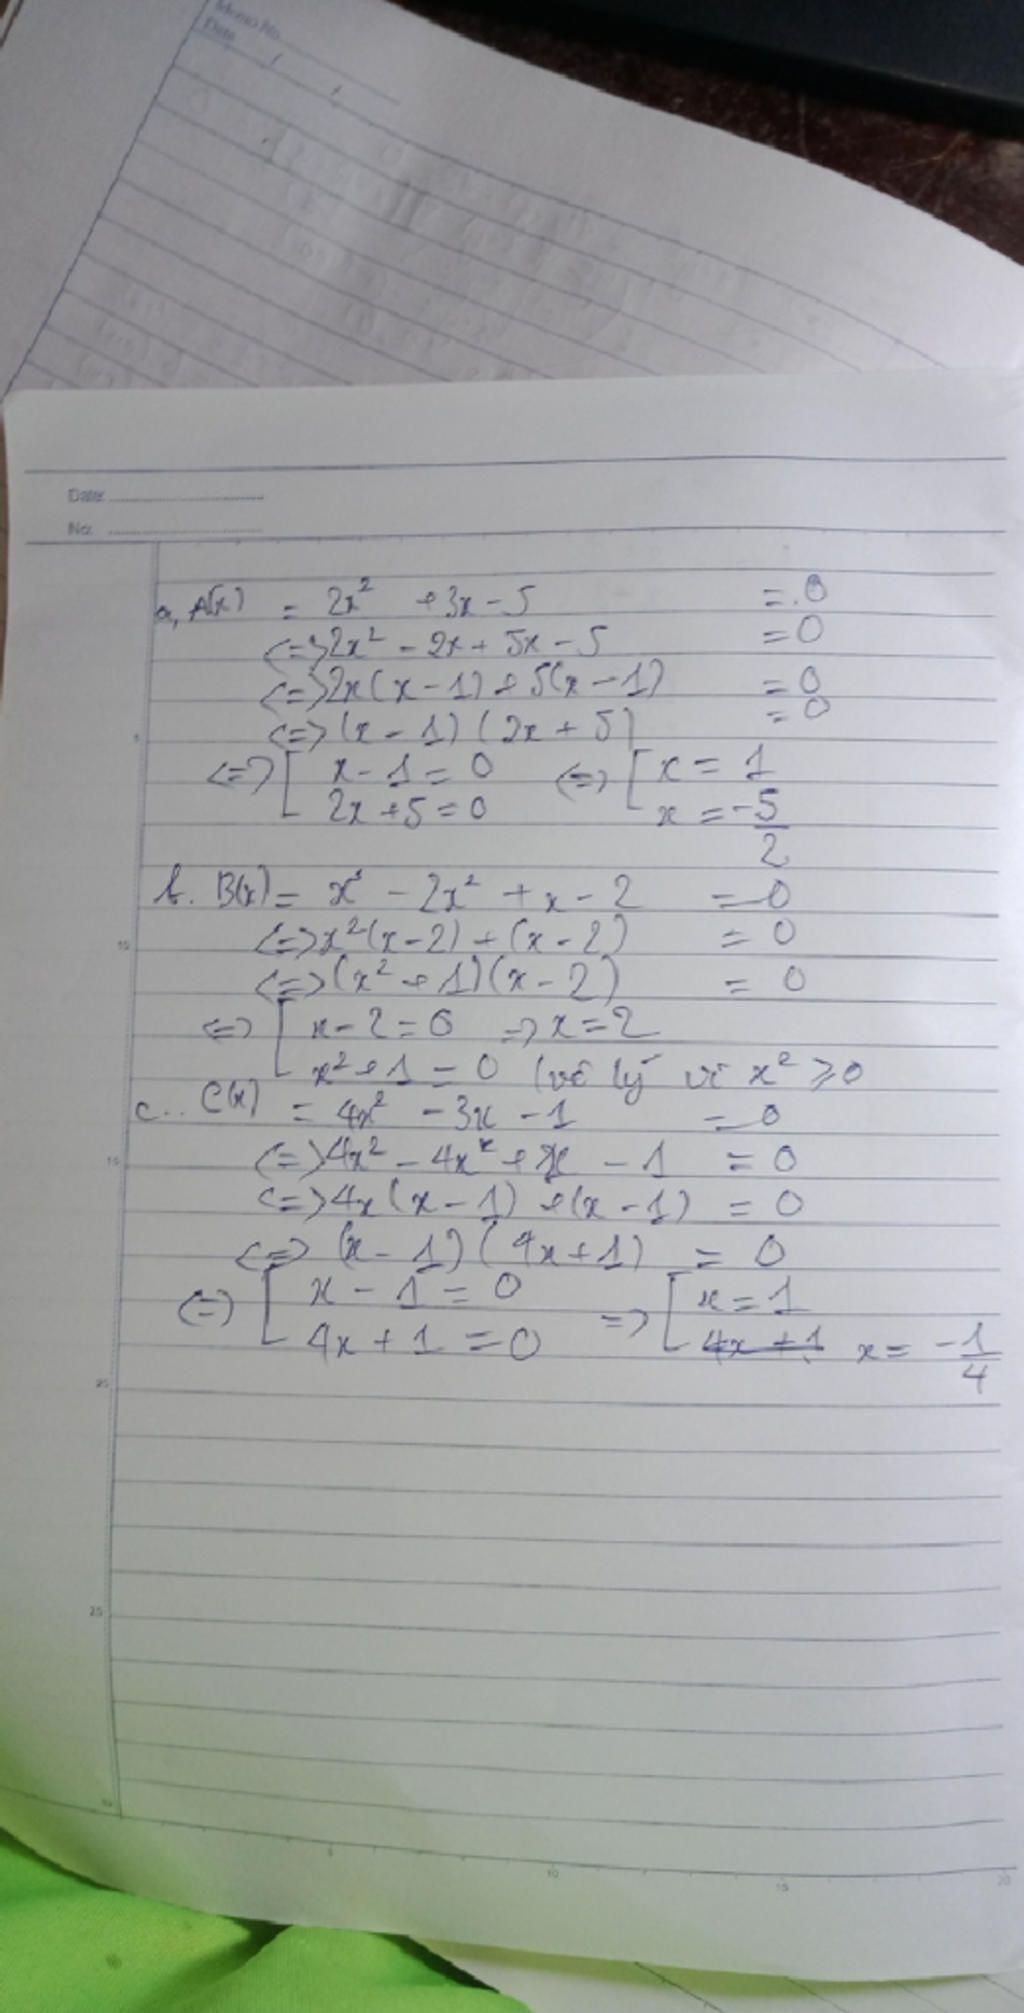 Memo No.
Date / /
Date:
No:
a, A(x) = 2x² + 3x - 5 = 0
<=> 2x² - 2x + 5x - 5 = 0
<=> 2x(x - 1) + 5(x - 1) = 0
<=> (x - 1) (2x + 5) = 0
5
<=> [ x - 1 = 0 <=> [ x = 1
2x + 5 = 0 x = -5/2
b. B(x) = x³ - 2x² + x - 2 = 0
10 <=> x²(x - 2) + (x - 2) = 0
<=> (x² + 1)(x - 2) = 0
<=> [ x - 2 = 0 => x = 2
x² + 1 = 0 (vô lý vì x² ≥ 0
c.. C(x) = 4x² - 3x - 1 = 0
15 <=> 4x² - 4x + x - 1 = 0
<=> 4x(x - 1) + (x - 1) = 0
<=> (x - 1) (4x + 1) = 0
(=) [ x - 1 = 0 => [ x = 1
4x + 1 = 0 4x + 1 x = -1/4
25
5 10 15 20